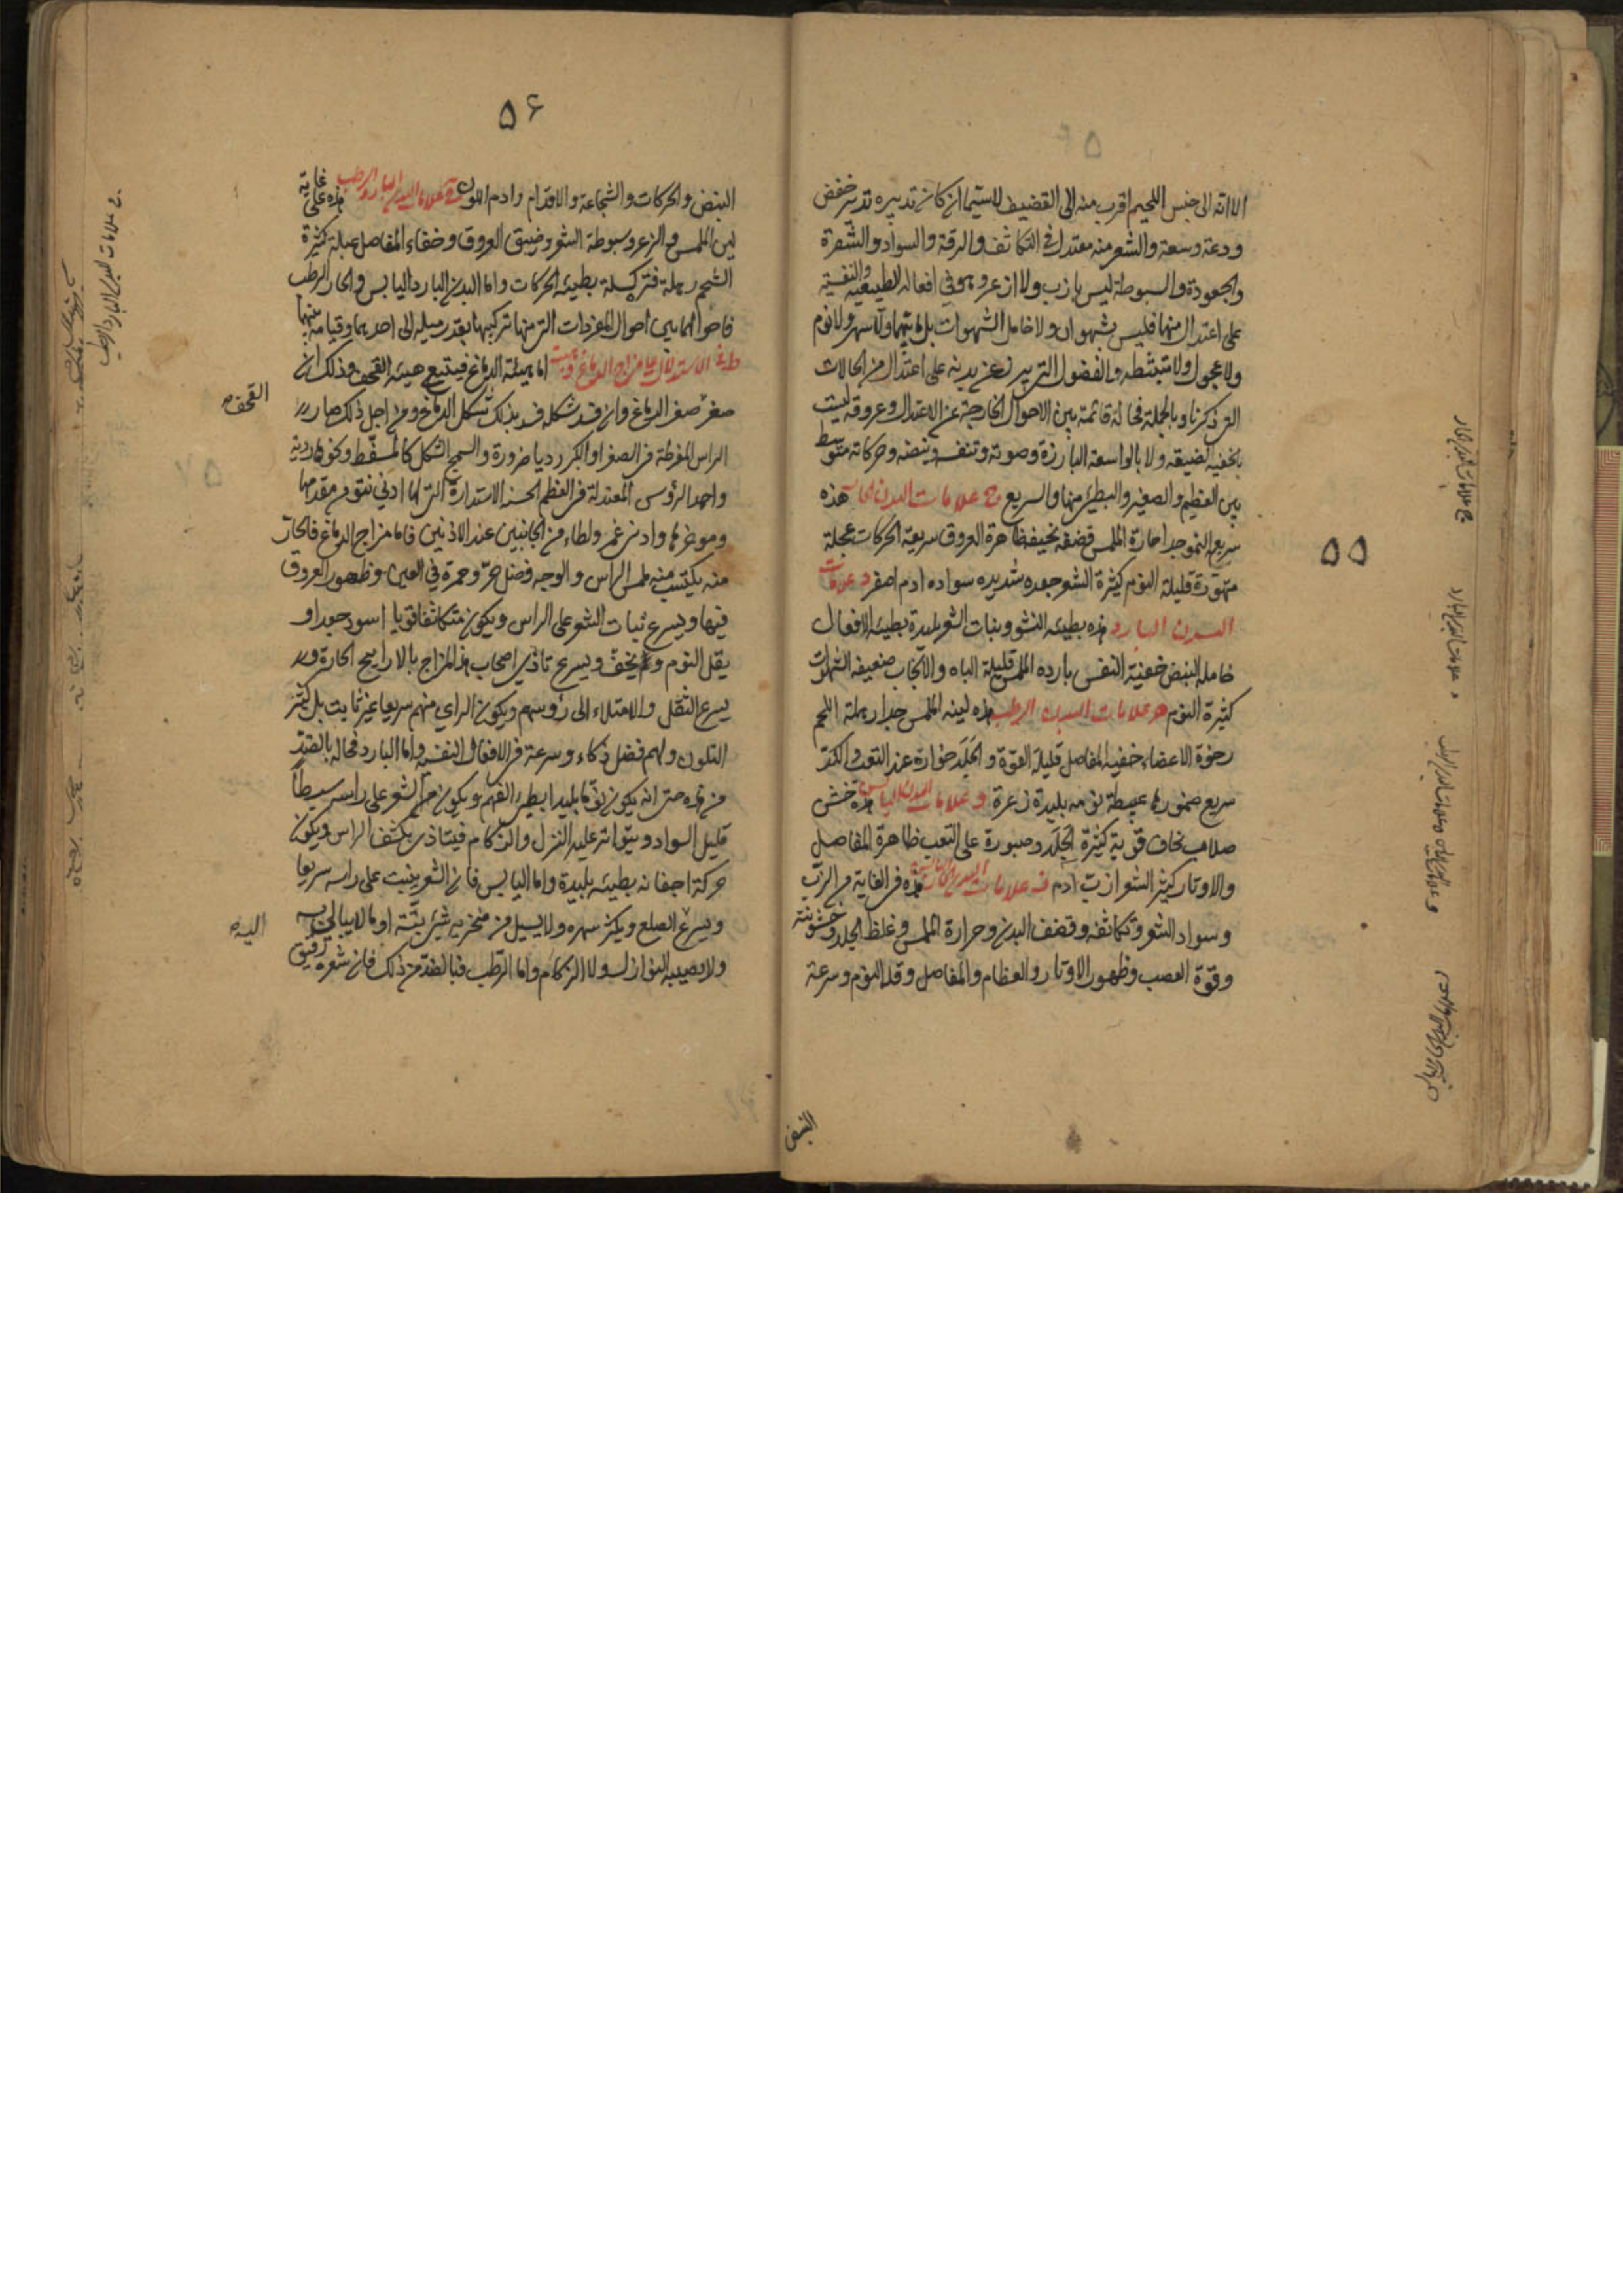 ٥٥
الا انه الى جنس اللحيم اقرب منه الى القضيف لا سيما ان كان تدبيره تدبير خفض
ودعة وسعة والشعر منه معتدل في التكاثف والرقة والسواد والشقرة
والجعودة والسبوطة ليس بازب ولا ازعر وهو في افعاله الطبيعية والنفسية
على اعتدال منها فليس بشهوان ولا خامل الشهوات بل ولا سهر ولا نوم
ولا عجول ولا متثبط والفضول التي من بدنه على اعتدال من الحالات
التي ذكرنا وبالجملة فحاله قائمة بين الاحوال الخارجة عن الاعتدال وعروقه ليست
بالخفية الضيقة ولا بالواسعة البارزة وصوته وتنفسه ونبضه وحركاته متوسط
بين العظيم والصغير والبطيء منها والسريع ج علامات البدن الحار هذه
سريع النمو جدا حارة الملمس قضفه نحيفة ظاهرة العروق سريعة الحركات عجلة
متهورة قليلة النوم كثيرة الشعر جعده شديده سواده ادم اصفر د علامات
البدن البارد هذه بطيئه النشو ونبات الشعر بليدة بطيئه الافعال
خامله النبض خفية النفس بارده الملمس قليلة الباه والانجاب ضعيفه الشهوات
كثيرة النوم ه علامات البدن الرطب هذه لينه الملمس جدا رهلة اللحم
رخوة الاعضاء خفيه المفاصل قليلة القوة والجلد خوارة عند التعب والكد
سريع ضمورها عبيطة نومه بليدة زعرة و علامات البدن اليابس هذه خشن
صلاب نحاف قوية كثيرة الجلد وصبورة على التعب ظاهرة المفاصل
والاوتار كثير الشعر ازب ادم علامات البدن الحار اليابس هذه في الغاية من الزبب
وسواد الشعر وتكاثفه وقضف البدن وحرارة الملمس وغلظ الجلد وخشونته
وقوة العصب وظهور الاوتار والعظام والمفاصل وقلة النوم وسرعة
النبض
٥٦
النبض والحركات والشجاعة والاقدام وادم اللون علامات البدن البارد الرطب هذه على غاية
لين الملمس والزعر وسبوطة الشعر وضيق العروق وخفاء المفاصل عبلة كثيرة
الشحم رهلة كسلة بطيئه الحركات واما البدن البارد اليابس والحار الرطب
فاحوالهما بين احوال المفردات التي منها تركيبهما بقدر ميله الى احدهما وقيامه بينهما
ط في الاستدلال على مزاج الدماغ وهيئته اما هيئة الدماغ فيتبع هيئة القحف وذلك ان
صغر صغر الدماغ وان فسد شكله فسد بذلك شكل الدماغ ومن اجل ذلك صار
الراس المفرطة في الصغر او الكبر رديا ضرورة والسمج الشكل كالمسفط ونحوها ردية
واحمد الرؤس المعتدلة في العظم الحسنة الاستدارة التي لها ادنى نتو من مقدمها
ومؤخرها وادنى غمز ولطاء من الجانبين عند الاذنين فاما مزاج الدماغ فالحار
منه يكتسب منه لمس الراس والوجه فضل حر وحمرة في العين وظهور العروق
فيها ويسرع نبات الشعر على الراس ويكون متكاثفا قويا اسود جعدا و
يقل النوم ويخف ويسرع تاذي اصحاب هذا المزاج بالاراييح الحارة و
يسرع الثقل والامتلاء الى رؤسهم ويكون الراي منهم سريعا غير ثابت بل كثير
التلون ولهم فضل ذكاء وسرعة في الافعال النفسية واما البارد فحاله بالضد
من هذه حتى انه يكون نوما بليدا بطيء الفهم ويكون الشعر على راسه سبطا
قليل السواد ويتواتر عليه النزل والزكام فيتاذى بكشف الراس ويكون
حركة اجفانه بطيئه بليدة واما اليابس فان الشعر ينبت على راسه سريعا
ويسرع الصلع ويكثر سهره ولا يسيل من منخريه شيء بتة او ما لا يبالى به
ولا يصيبه النوازل ولا الزكام واما الرطب فبالضد من ذلك فان شعره رقيق
القحف
ج علامات البدن الحار
د علامات البدن البارد
علامات البدن البارد الرطب